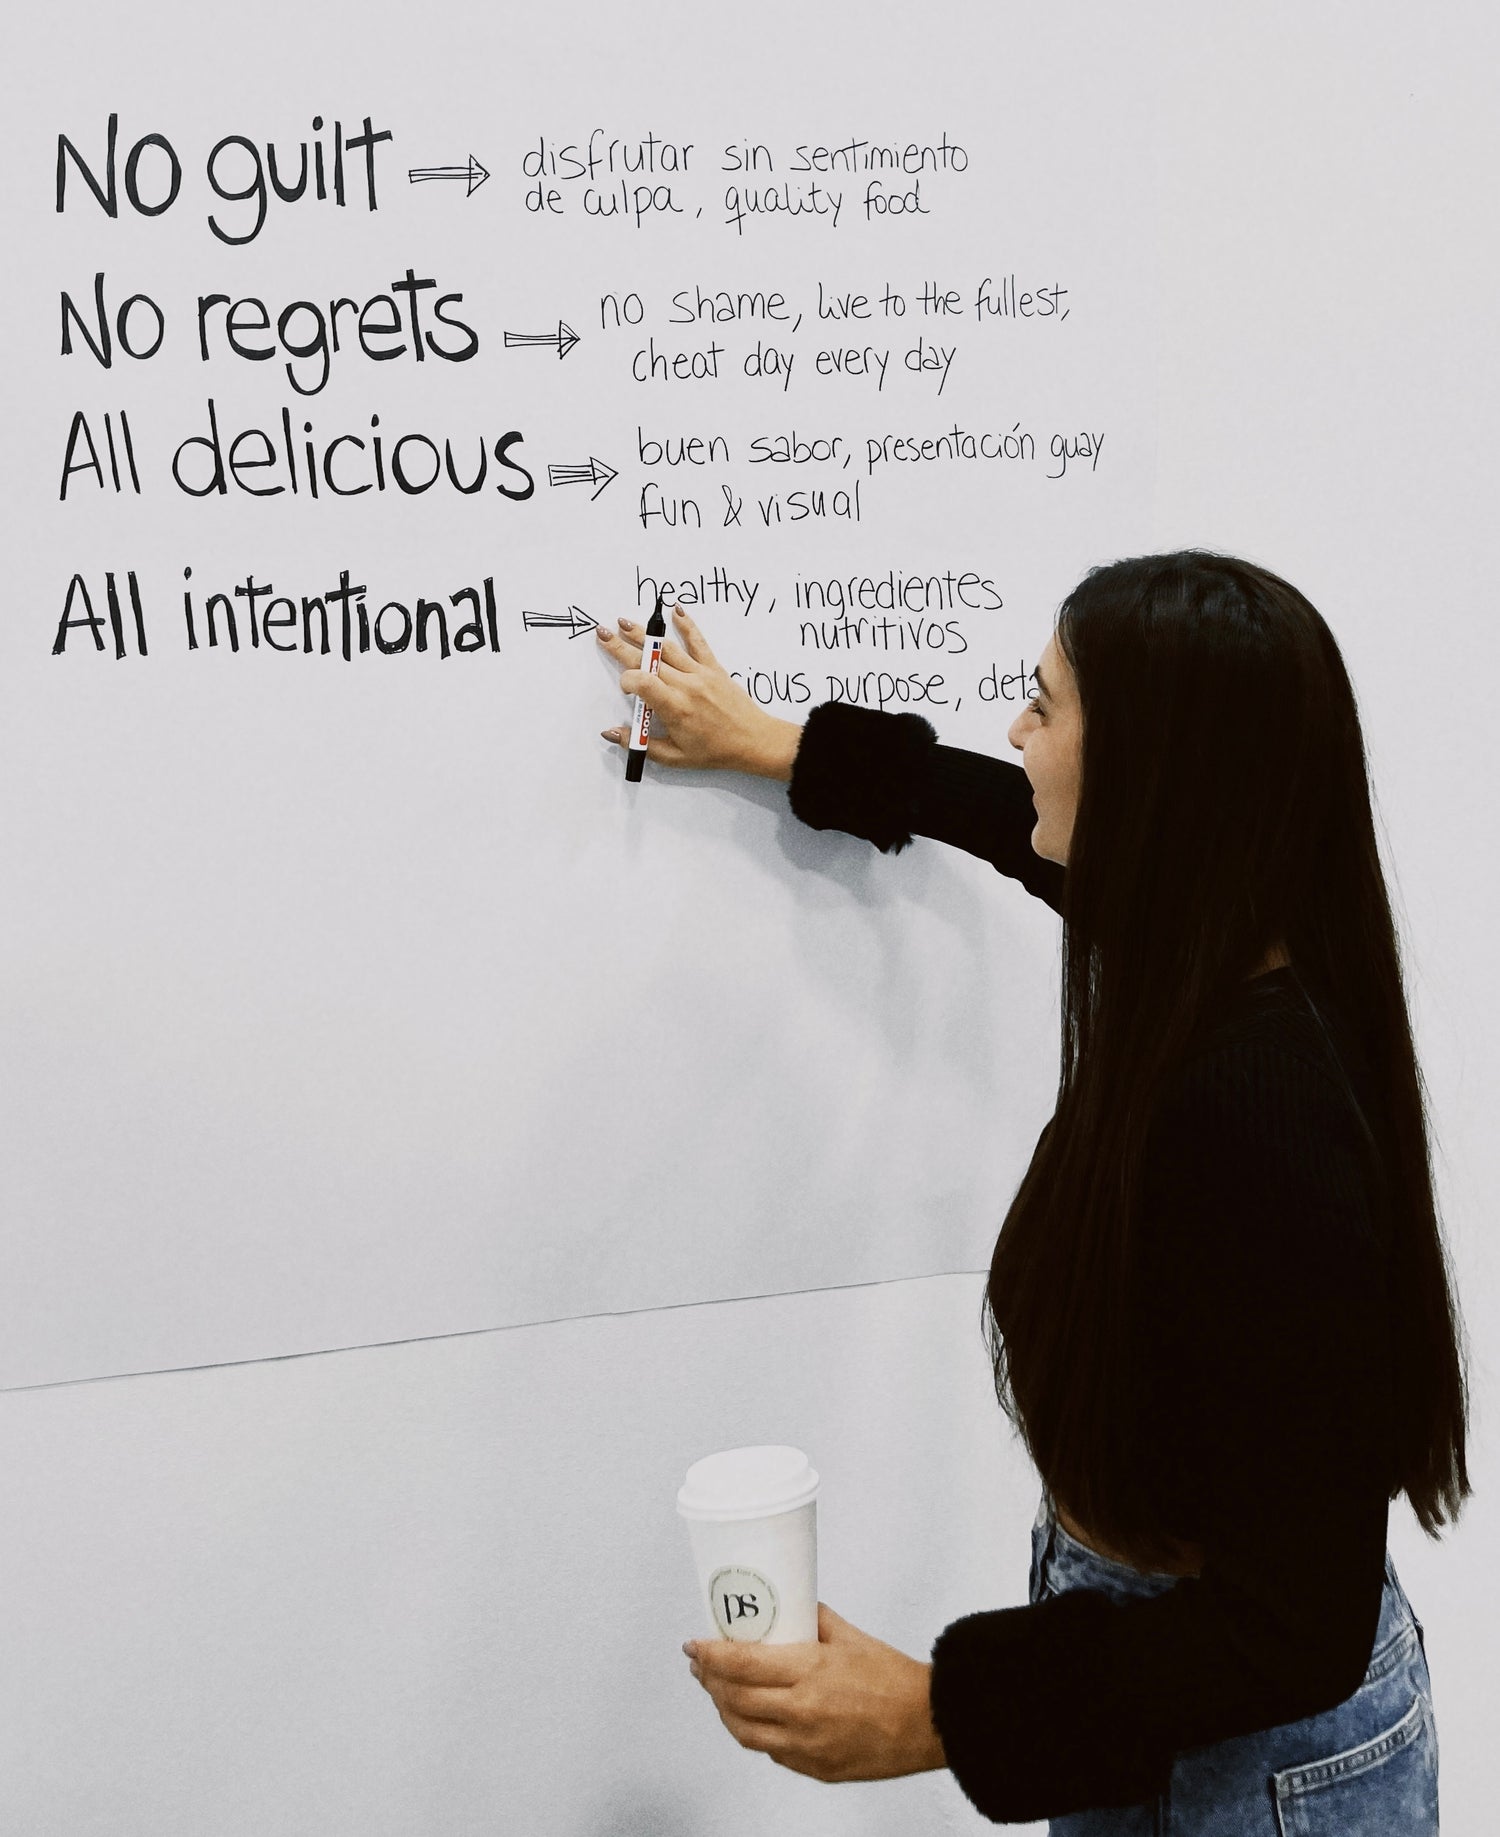 No guilt
disfrutar sin sentimiento
de culpa, quality food
No regrets
no shame, live to the fullest,
cheat day every day
All delicious
buen sabor, presentación guay
fun & visual
All intentional
healthy, ingredientes
nutritivos
purpose,
ps